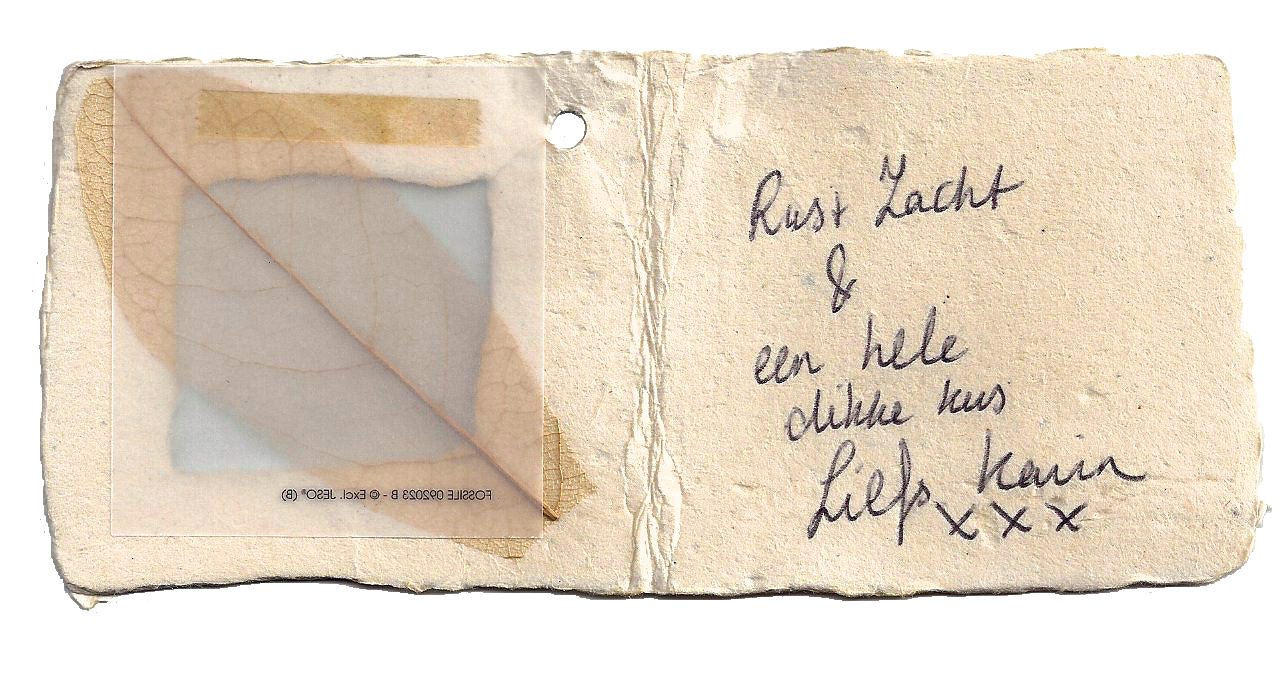 FOSSILE 092023 B - © Excl. JESO® (B)
Rust Zacht
&
een hele
dikke kus
Liefs Karin
x x x